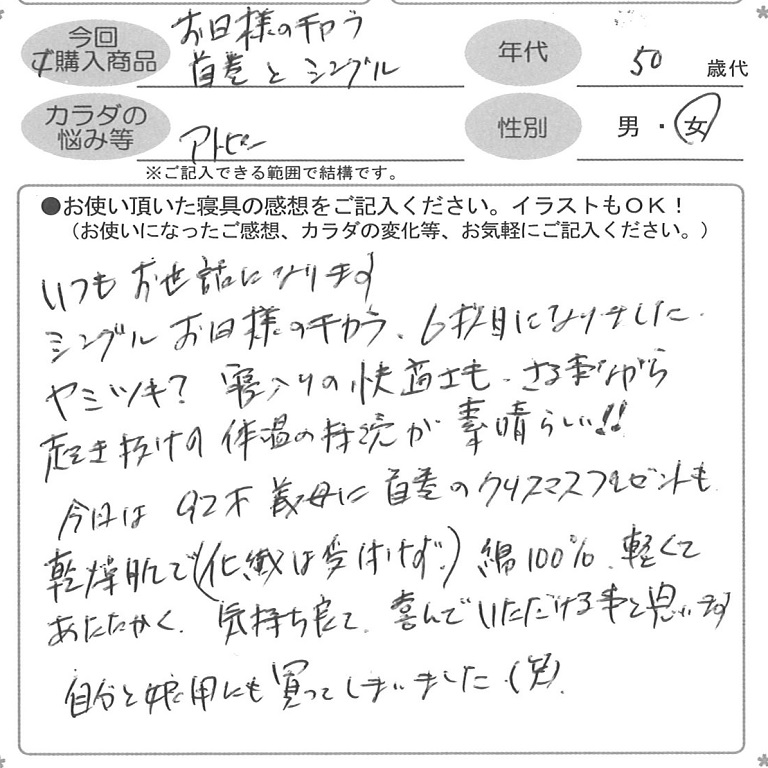 今回
ご購入商品
お日様のチカラ
首巻とシングル
年代
50 歳代
カラダの
悩み等
アトピー
性別
男・女
※ご記入できる範囲で結構です。
●お使い頂いた寝具の感想をご記入ください。イラストもOK！
（お使いになったご感想、カラダの変化等、お気軽にご記入ください。）
いつもお世話になります
シングルお日様のチカラ、6枚目になりました.
ヤミツキ? 寝入りの快適士も、さる事ながら
起き抜けの体温の持続が素晴らしい!!
今日は92才義母に首巻のクリスマスプレゼントも
乾燥肌で(化繊は受付けず。)綿100%、軽くて
あたたかく、気持ち良くて、喜んでいただける事と思います
自分と娘用にも買ってしまいました(笑).